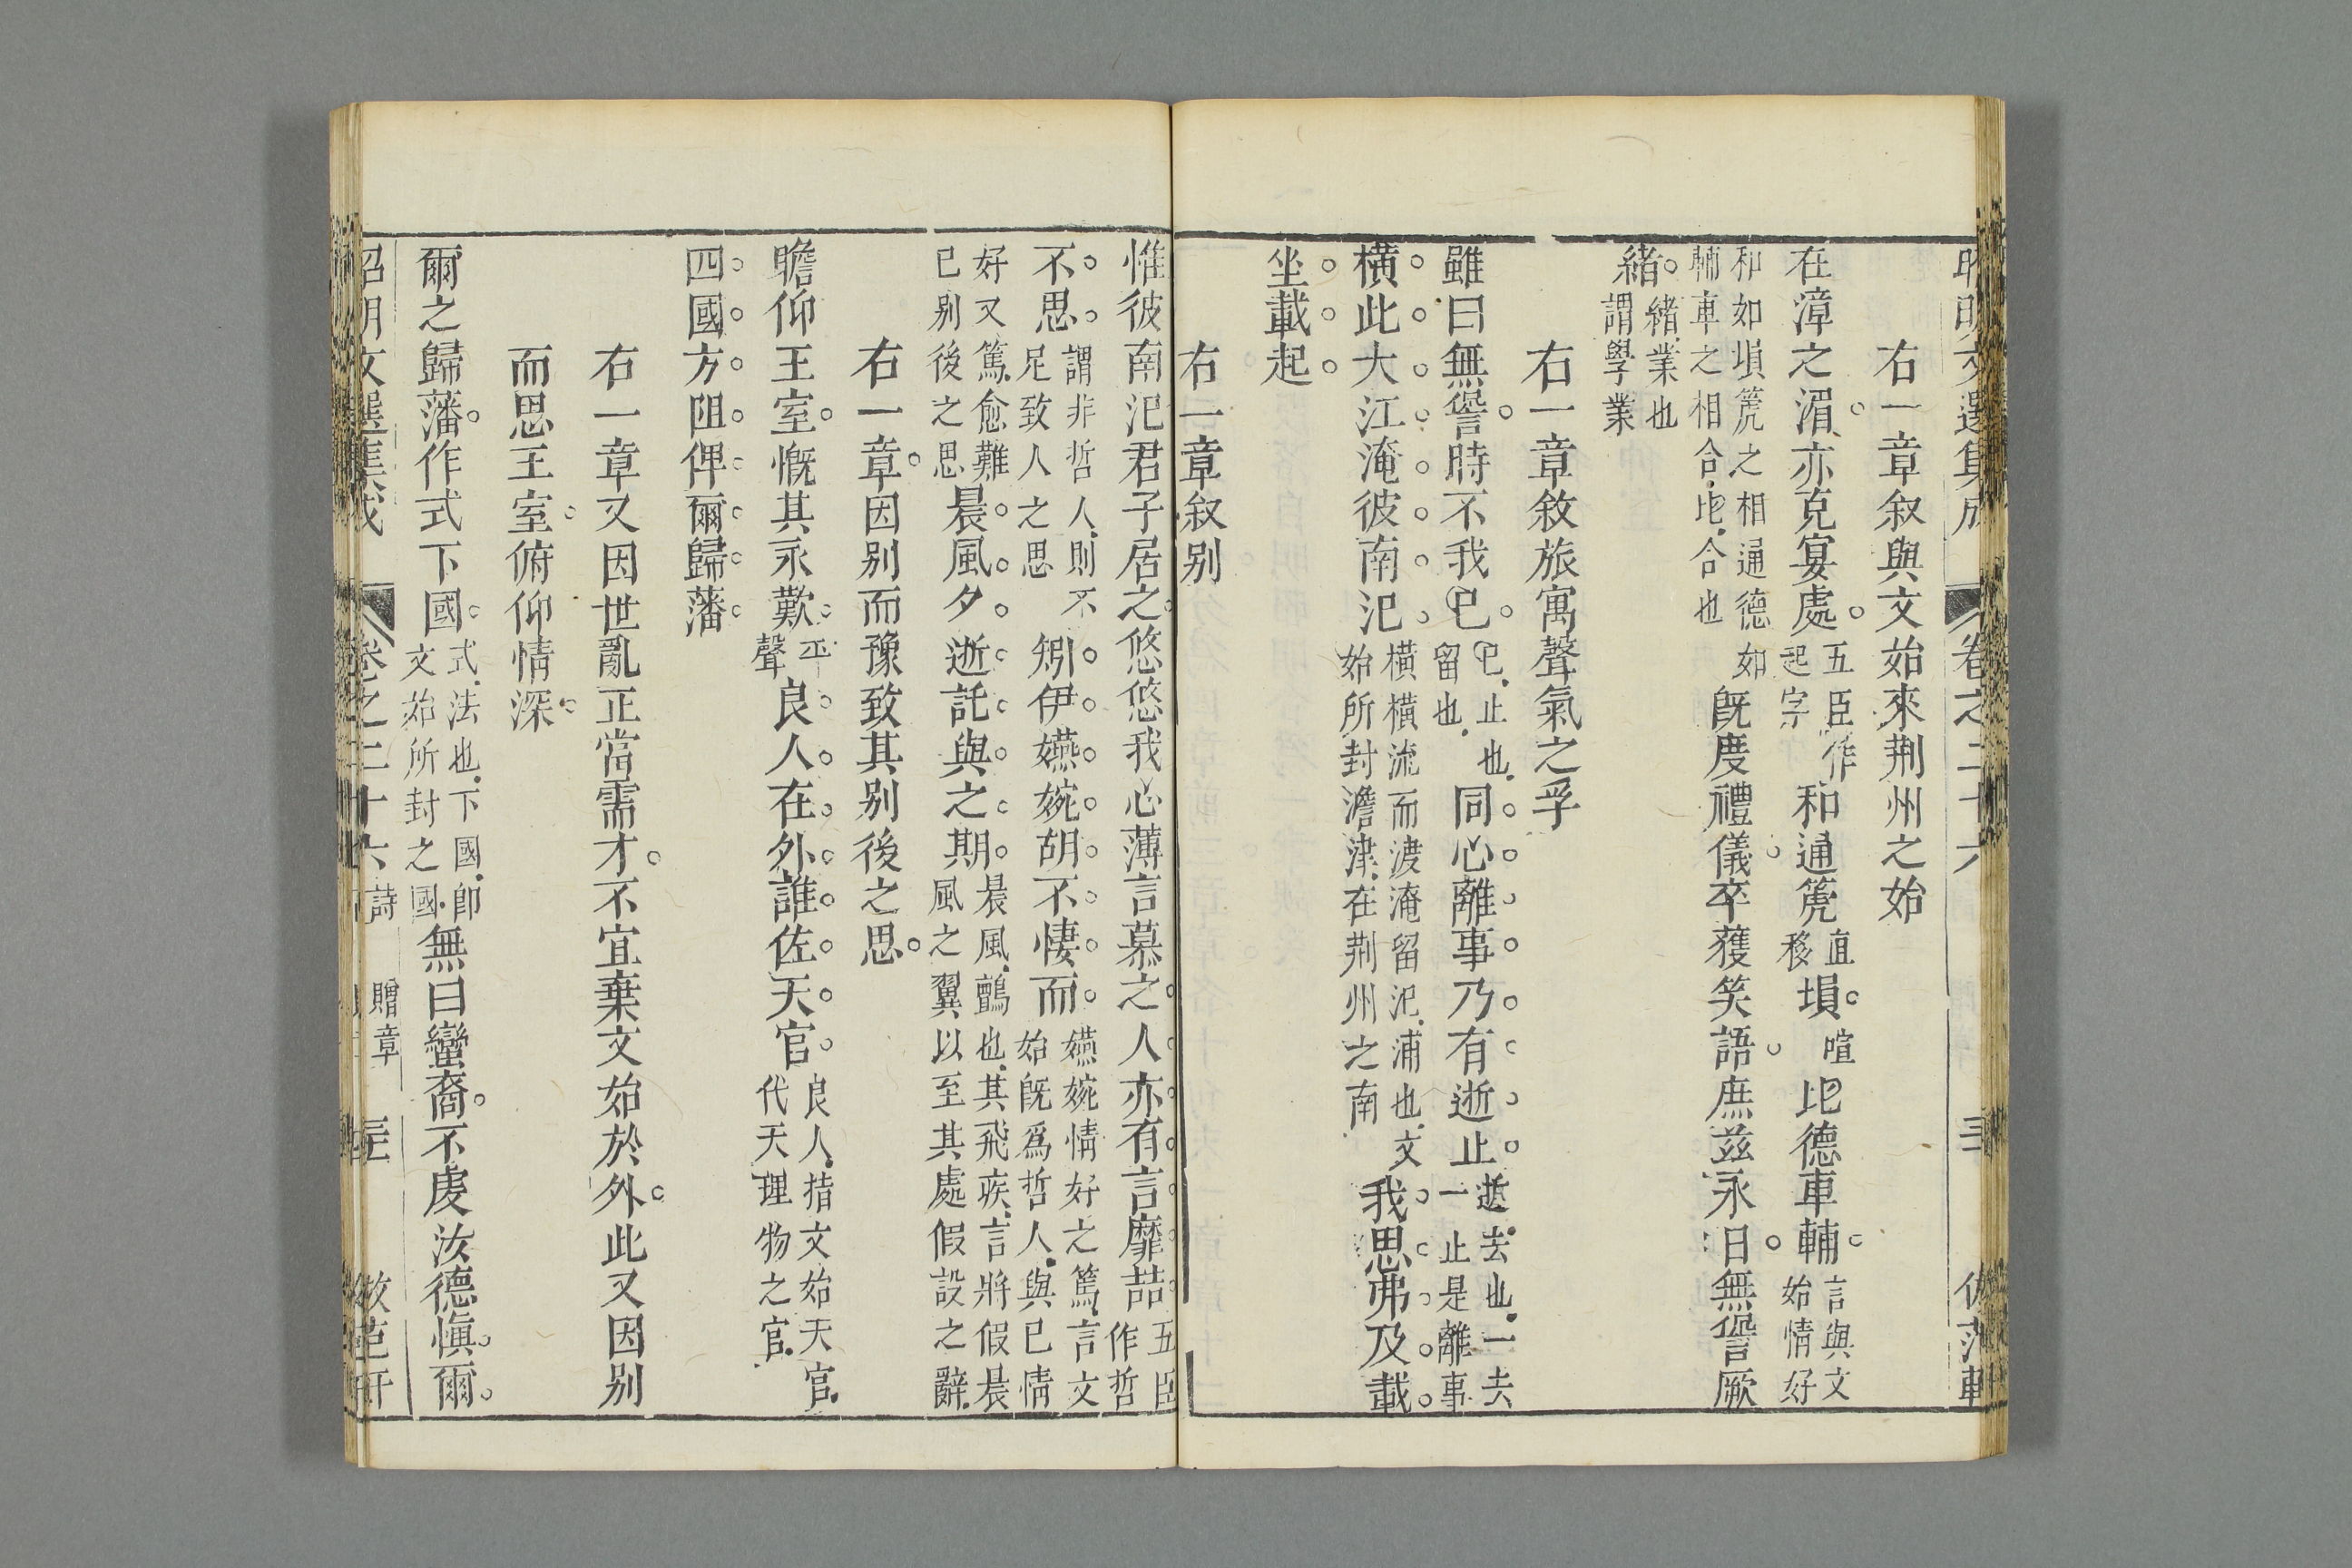 昭明文選集成 卷之二十六
右一章叙與文始來荆州之始
在漳之湄亦克宴處五臣作起字和通箎直移塤喧比德車輔言與文始情好
和如塤箎之相通德如輔車之相合比合也旣度禮儀卒獲笑語庶兹永日無諐厥
緒緒業也謂學業
右一章敘旅寓聲氣之孚
雖曰無諐時不我已已止也留也同心離事乃有逝止逝去也一去一止是離事
橫此大江淹彼南汜橫橫流而渡淹留汜浦也文始所封澹津在荆州之南我思弗及載
坐載起
右一章叙别
惟彼南汜君子居之悠悠我心薄言慕之人亦有言靡喆五臣作哲
不思謂非哲人則不足致人之思矧伊嬿婉胡不悽而嬿婉情好之篤言文始旣爲哲人與已情
好又篤愈難已别後之思晨風夕逝託與之期晨風鸇也其飛疾言將假晨風之翼以至其處假設之辭
右一章因别而豫致其别後之思
瞻仰王室慨其永歎平聲良人在外誰佐天官良人指文始天官代天理物之官
四國方阻俾爾歸藩
右一章又因世亂正當需才不宜棄文始於外此又因别
而思王室俯仰情深
爾之歸藩作式下國式法也下國卽文始所封之國無曰蠻裔不虔汝德愼爾
昭明文選集成 卷之二十六 詩 贈章